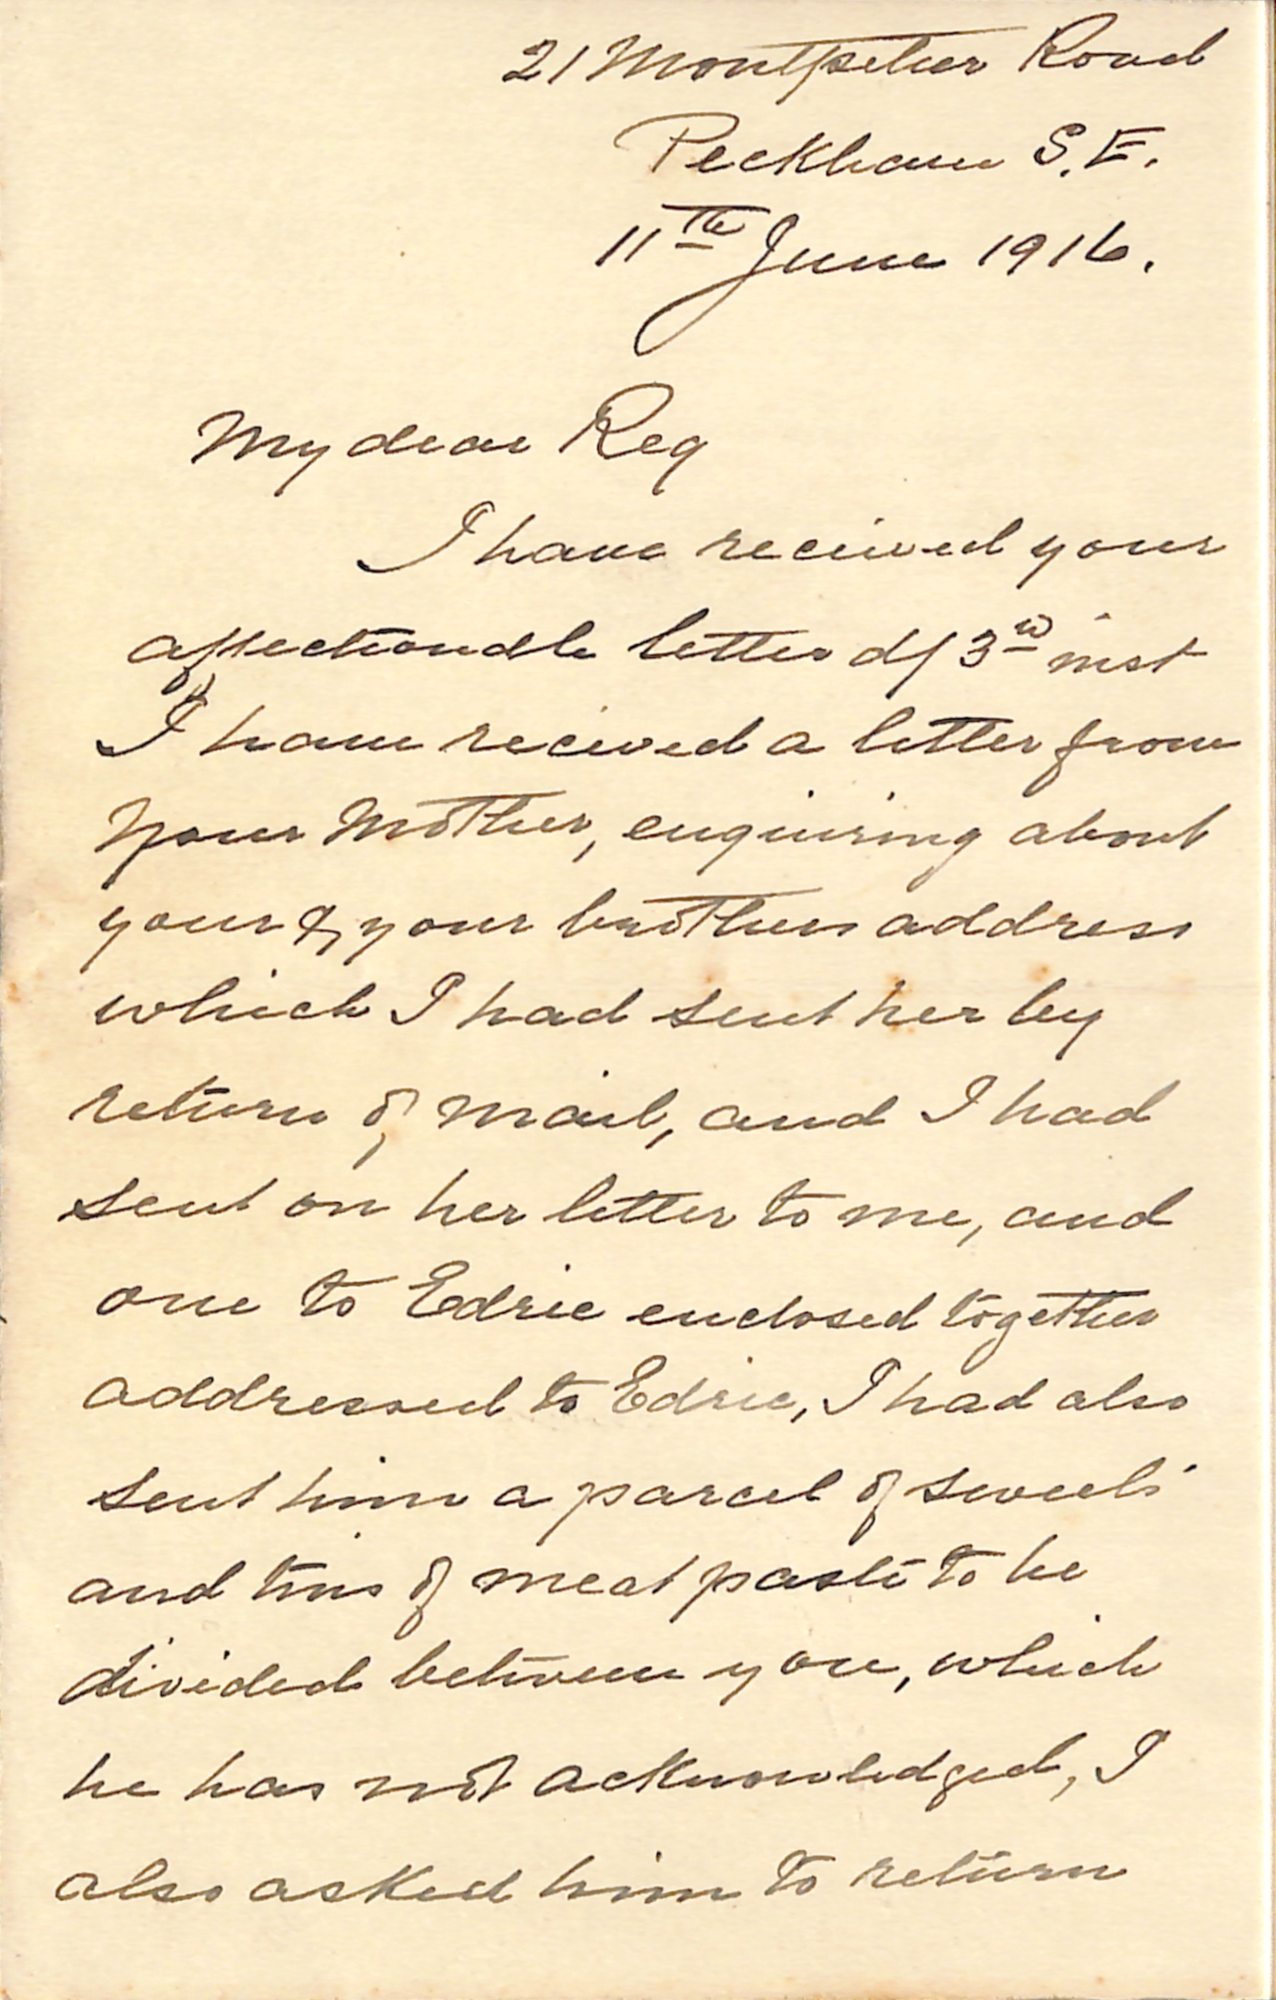 21 Montpelier Road
Peckham S.E.
11th June 1916.
My dear Reg
I have received your
affectionate letter df 3rd inst
I have received a letter from
your Mother, enquiring about
your & your brothers address
which I had sent her by
return of mail, and I had
sent on her letter to me, and
one to Edric enclosed together
addressed to Edric, I had also
sent him a parcel of sweets
and tins of meat paste to be
divided between you, which
he has not acknowledged, I
also asked him to return